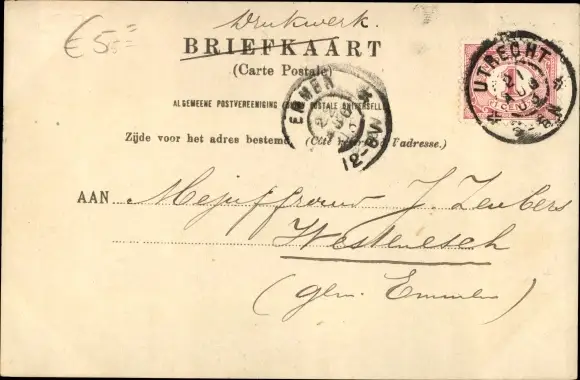 Drukwerk.
€ 5=
BRIEFKAART
(Carte Postale)
UTRECHT
1
CENT
ALGEMEENE POSTVEREENIGING POSTALE UNIVERSELLE
EMMEN
12-8VM
Zijde voor het adres bestemd. (Côté l'adresse.)
AAN Mejuffrouw J. Zeubers
Westenesch
(gem. Emmen)